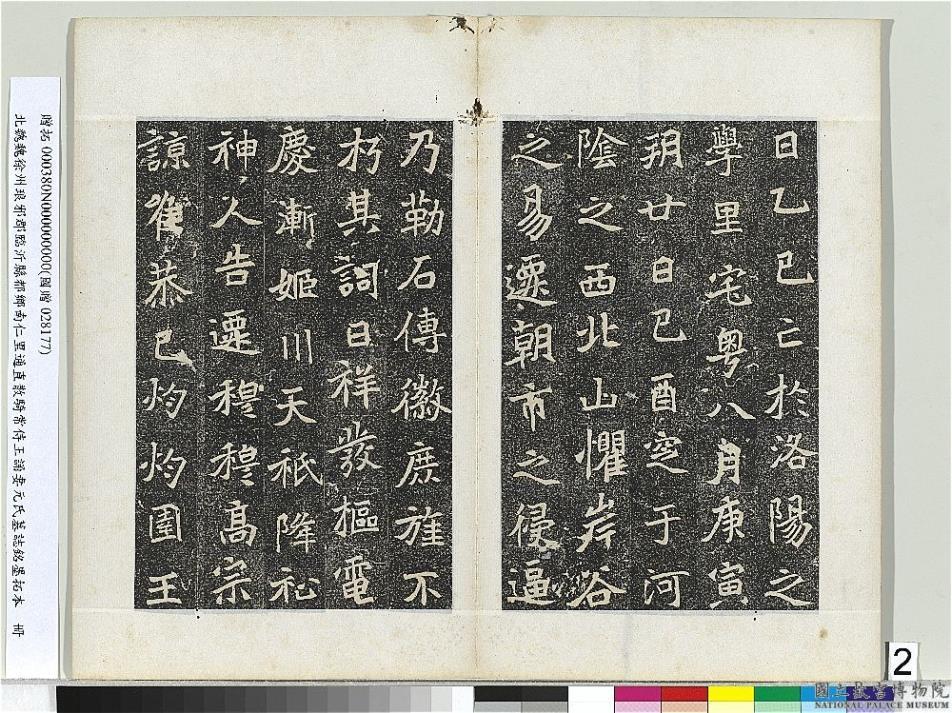 日乙巳亡於洛陽之
學里宅粵八月庚寅
朔廿日己酉窆于河
陰之西北山懼岸谷
之易遷朝市之侵逼
乃勒石傳徽庶旌不
朽其詞曰祥發樞電
慶漸姬川天祇降祉
神人告遷穆穆高宗
諒惟恭己灼灼圉王
贈拓 000380N000000000(國贈 028177)
北魏魏徐州琅邪郡臨沂縣都鄉南仁里通直散騎常侍王誦妻元氏墓誌銘墨拓本 冊
2
國立故宮博物院
NATIONAL PALACE MUSEUM